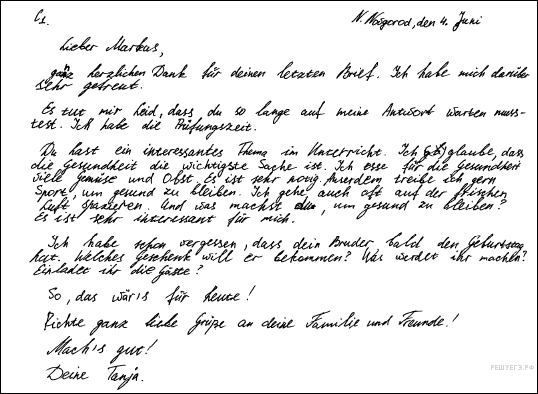 C1.
N. Nowgorod, den 4. Juni
Lieber Markus,
ganz herzlichen Dank für deinen letzten Brief. Ich habe mich darüber
sehr gefreut.
Es tut mir Leid, dass du so lange auf meine Antwort warten muss-
test. Ich habe die Prüfungszeit.
Du hast ein interessantes Thema im Unterricht. Ich glaube, dass
die Gesundheit die wichtigste Sache ist. Ich esse für die Gesundheit
viell Gemüse und Obst. Es ist sehr nötig. Auserdem treibe ich gern
Sport, um gesund zu bleiben. Ich gehe auch oft auf der frischen
Luft spazieren. Und was machst du, um gesund zu bleiben?
Es ist sehr interessant für mich.
Ich habe schon vergessen, dass dein Bruder bald den Geburtstag
hat. Welches Geschenk will er bekommen? Was werdet ihr machen?
Einladet ihr die Gäste?
So, das wär's für heute!
Richte ganz liebe Grüße an deine Familie und Freunde!
Mach's gut!
Deine Tanja.
РЕШУЕГЭ.РФ